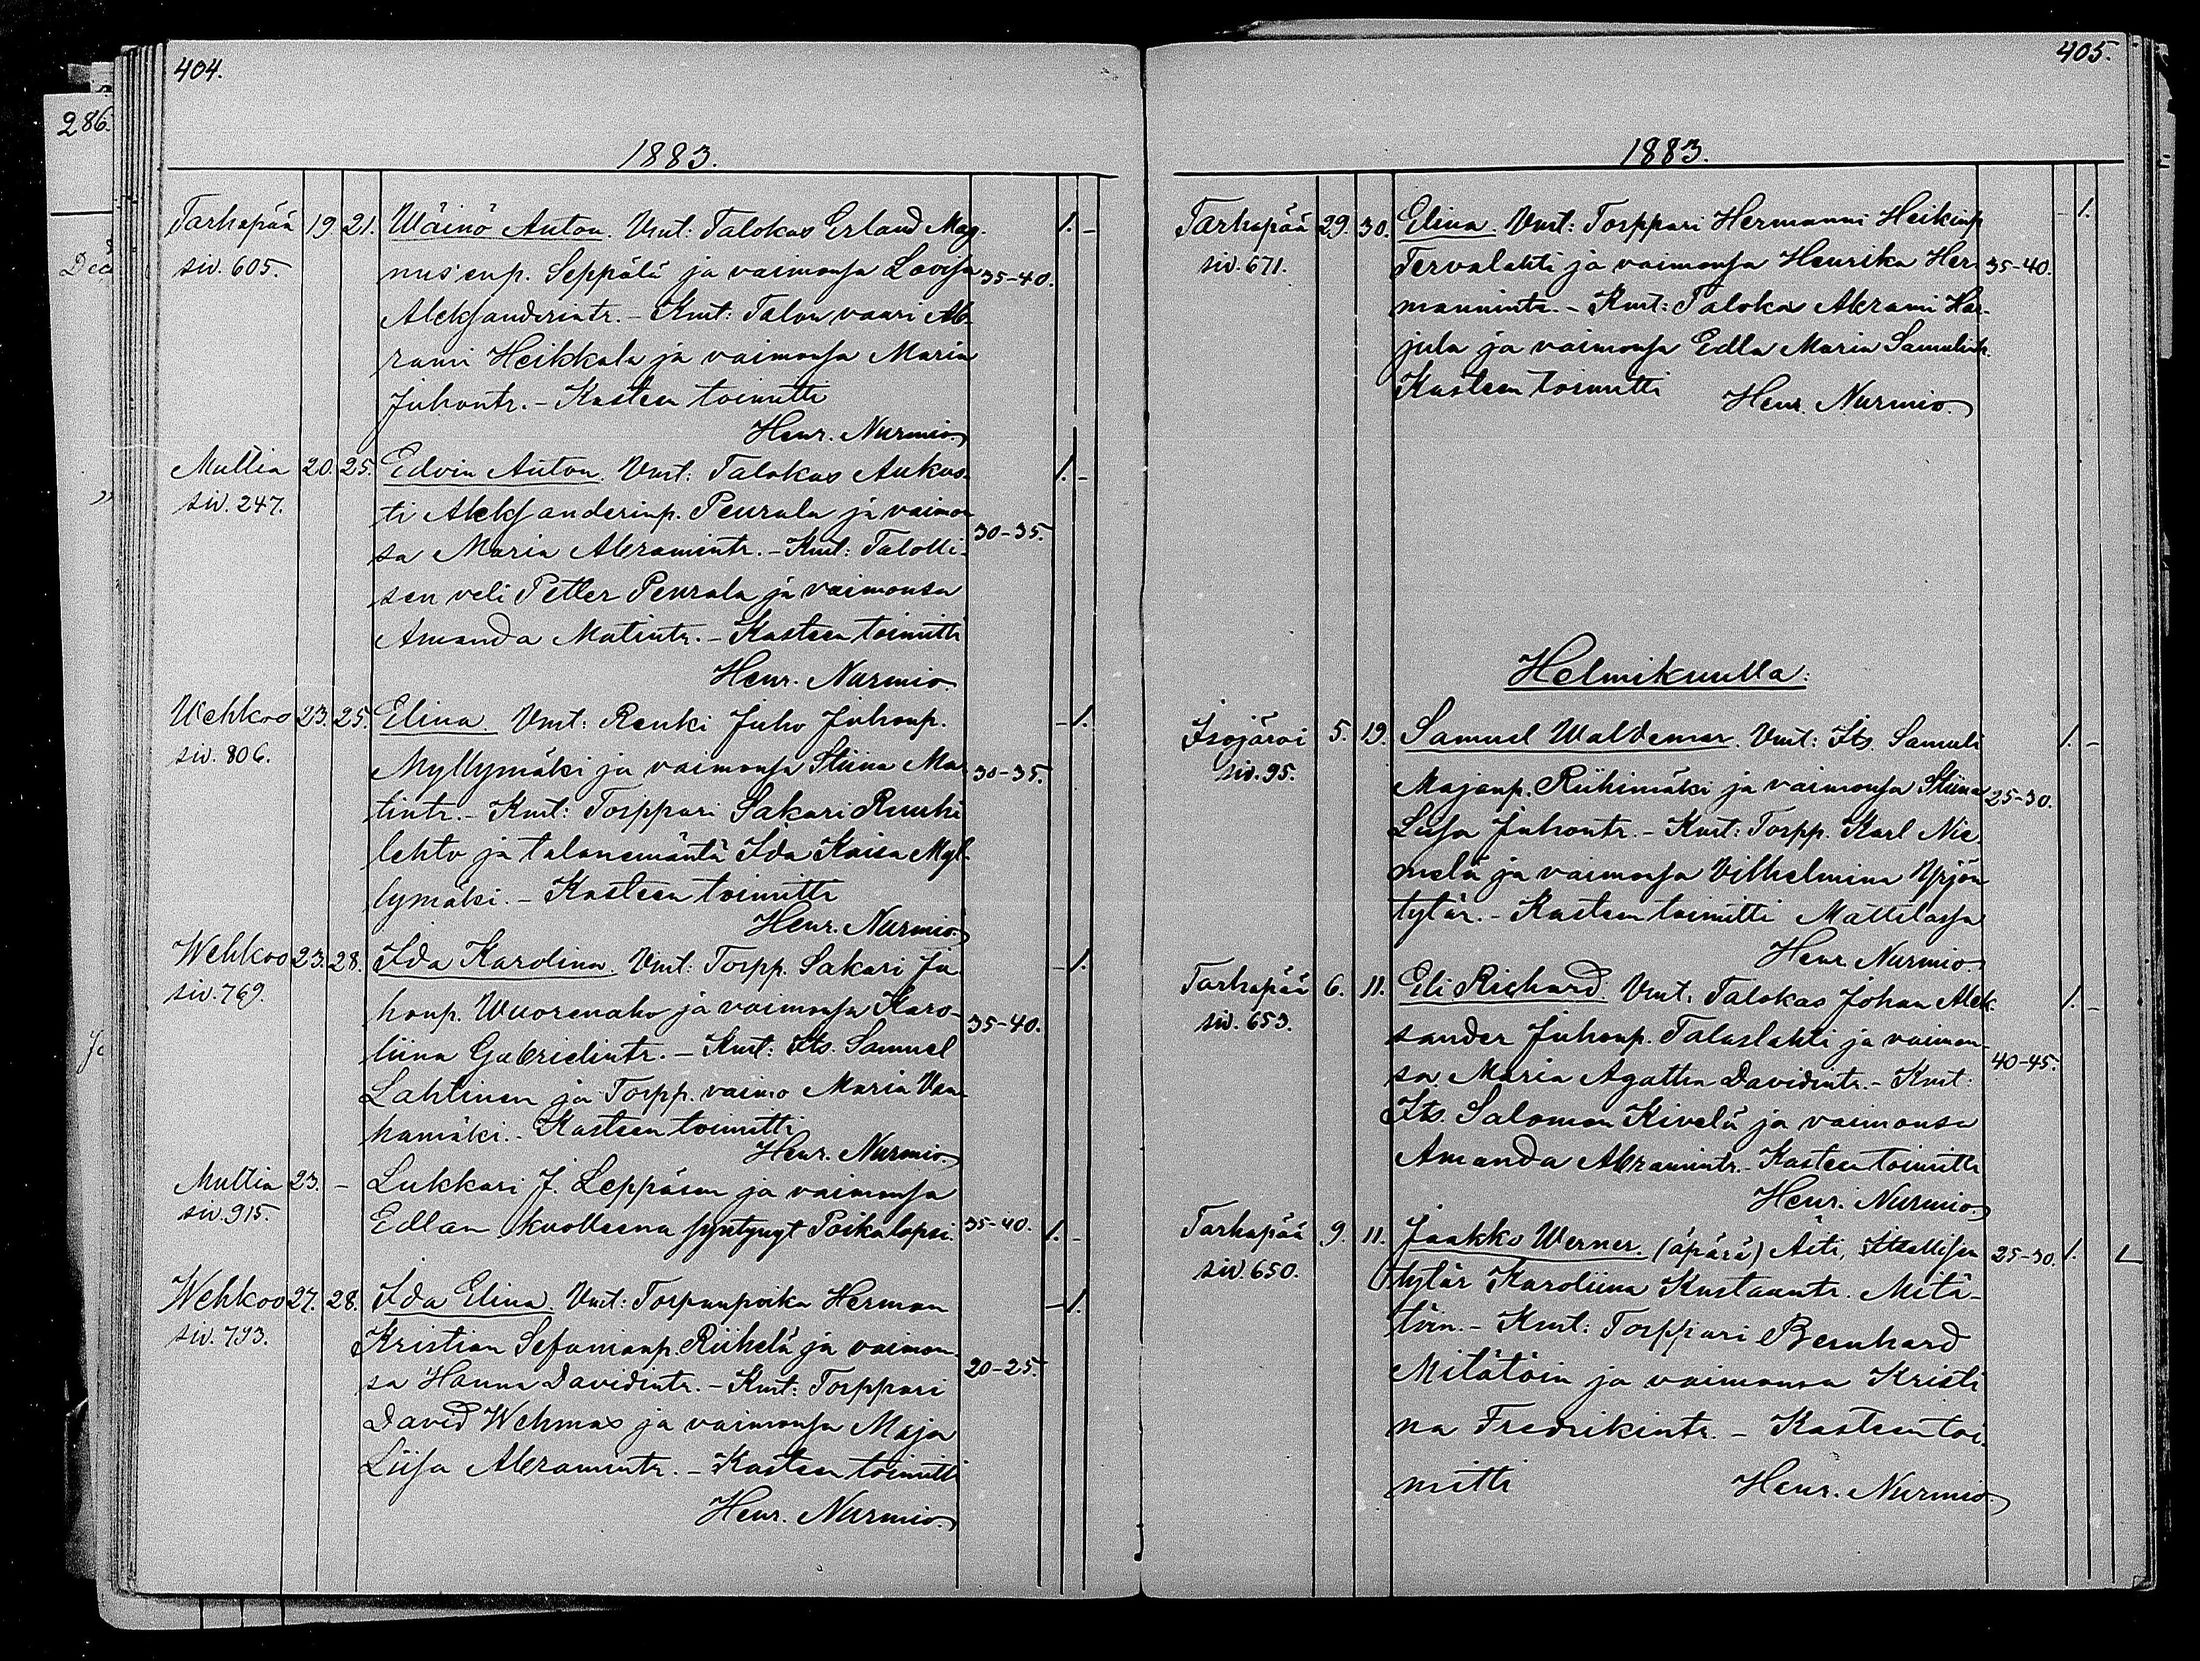 404.
286.
1883.
Tarhapää 19 21. Wäinö Anton. Vmt: Talokas Erland Mag-
siv. 605. nus'enp. Seppälä ja vaimonsa Lovisa 35-40. 1. -
Aleksanderintr. - Kmt: Talon vaari Ab-
rami Heikkala ja vaimonsa Maria
Juhontr. - Kasteen toimitti
Henr. Nurmio.
Multia 20. 25. Edvin Anton. Vmt: Talokas Aukus- 1. -
siv. 247. ti Aleksanderinp. Peurala ja vaimon
sa Maria Abramintr. - Kmt: Talolli- 30-35.
sen veli Petter Peurala ja vaimonsa
Amanda Matintr. - Kasteen toimitti
Henr. Nurmio.
Wehkoo 23. 25. Elina. Vmt: Renki Juho Juhonp. - 1.
siv. 806. Myllymäki ja vaimonsa Stiina Ma 30-35.
tintr. - Kmt: Torppari Sakari Ruuhi
lehto ja talonemäntä Ida Kaisa Myl-
lymäki. - Kasteen toimitti
Henr. Nurmio.
Wehkoo 23. 28. Ida Karolina. Vmt: Torpp. Sakari Ju - 1.
siv. 769. honp. Wuorenaho ja vaimonsa Karo- 35-40.
liina Gabrielintr. - Kmt: Its. Samuel
Lahtinen ja Torpp. vaimo Maria Van
hamäki. - Kasteen toimitti
Henr. Nurmio.
Multia 23. - Lukkari J. Leppäsen ja vaimonsa
siv. 915. Edlan kuolleena syntynyt Poikalapsi. 35-40. 1. -
Wehkoo 27. 28. Ida Elina. Vmt: Torpanpoika Herman - 1.
siv. 793. Kristian Sefanianp. Riihelä ja vaimon-
sa Hanna Davidintr. - Kmt: Torppari 20-25.
David Wehmas ja vaimonsa Maja
Liisa Abramintr. - Kasteen toimitti
Henr. Nurmio.
405.
1883.
Tarhapää 29. 30. Elina. Vmt: Torppari Hermanni Heikinp - 1.
siv. 671. Tervalahti ja vaimonsa Henrika Her- 35-40.
mannintr. - Kmt: Talokas Abrami Har-
jula ja vaimonsa Edla Maria Samulintr.
Kasteen toimitti Henr. Nurmio.
Helmikuulla:
Isojärvi 5. 19. Samuel Waldemar. Vmt: Its. Samuli 1. -
siv. 95. Majanp. Riihimäki ja vaimonsa Stiina 25-30.
Liisa Juhontr. - Kmt: Torpp. Karl Nie-
melä ja vaimonsa Vilhelmina Yrjön
tytär. - Kasteen toimitti Mattilassa
Henr. Nurmio.
Tarhapää 6. 11. Eli Richard. Vmt: Talokas Johan Alek- 1. -
siv. 653. sander Juhonp. Talaslahti ja vaimon-
sa Maria Agatha Davidintr. - Kmt: 40-45.
Its. Salomon Kivelä ja vaimonsa
Amanda Abramintr. - Kasteen toimitti
Henr. Nurmio.
Tarhapää 9. 11. Jaakko Werner. (äpärä) Äiti, Itsellisen 25-30. 1.
siv. 650. tytär Karoliina Kustaantr. Mitä-
töin. - Kmt: Torppari Bernhard
Mitätöin ja vaimonsa Kristi
na Fredrikintr. - Kasteen toi-
mitti Henr. Nurmio.